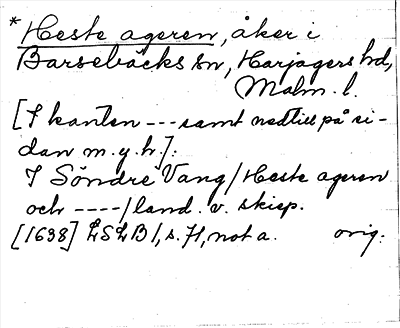 * Heste ageren, åker i
Barsebäcks sn, Harjagers hd,
Malm. l.
[I kanten --- samt nedtill på si-
dan m.y.h.]:
I Söndre Vang / Heste ageren
och ---- / land. v. skiep.
[1638] LSLB 1, s. 71, not a. orig.